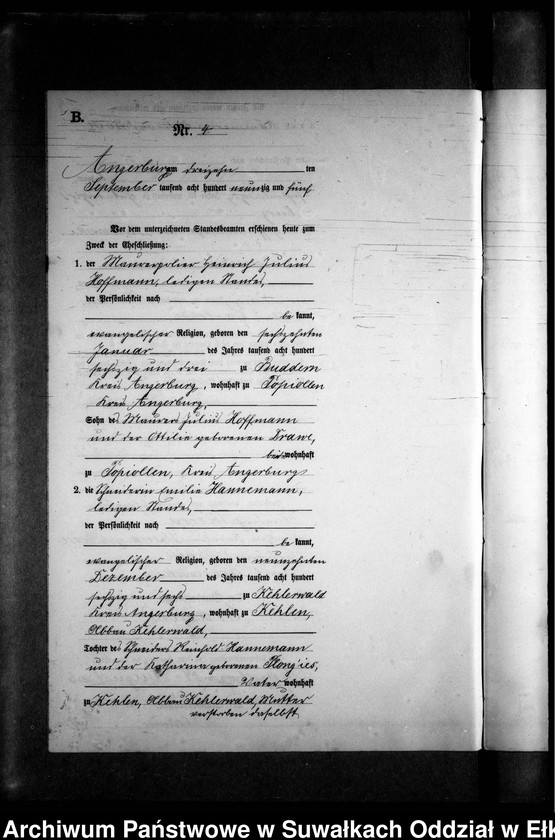 B.
Nr. 4
Angerburg am dreizehn ten
September tausend acht hundert neunzig und fünf
Vor dem unterzeichneten Standesbeamten erschienen heute zum
Zweck der Eheschließung:
1. der Maurerpolier Heinrich Julius
Hoffmann, ledigen Standes,
der Persönlichkeit nach
be kannt,
evangelischer Religion, geboren den sechszehnten
Januar des Jahres tausend acht hundert
sechszig und drei zu Buddern
Kreis Angerburg, wohnhaft zu Popiollen
Kreis Angerburg,
Sohn des Maurers Julius Hoffmann
und der Ottilie geborenen Drawe,
wohnhaft
zu Popiollen, Kreis Angerburg
2. die Schneiderin Emilie Hannemann,
ledigen Standes,
der Persönlichkeit nach
be kannt,
evangelischer Religion, geboren den neunzehnten
Dezember des Jahres tausend acht hundert
sechszig und sechs zu Kehlerwald
Kreis Angerburg, wohnhaft zu Kehlen,
Abbau Kehlerwald,
Tochter des Schneiders Reinhold Hannemann
und der Katharina geborenen
Vater wohnhaft
zu Kehlen, Abbau Kehlerwald, Mutter
verstorben daselbst
Archiwum Państwowe w Suwałkach Oddział w Ełk